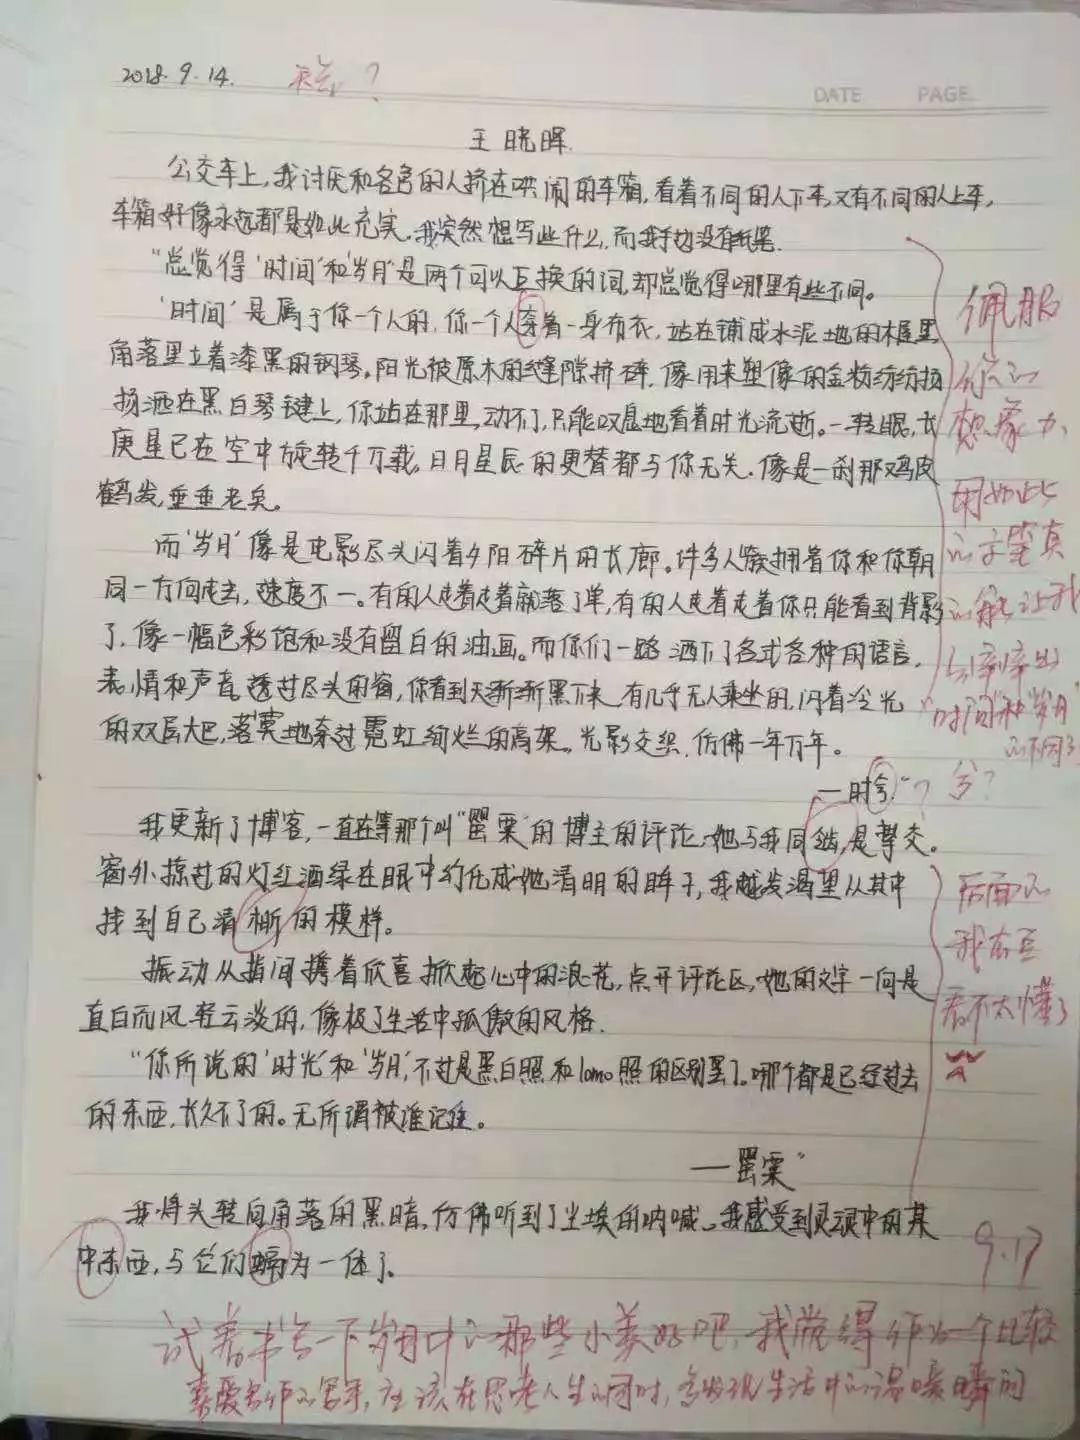 2018.9.14.
?
DATE PAGE
王晓晖.
公交车上,我讨厌和各色的人挤在哄闹的车箱,看着不同的人下车,又有不同的人上车,
车箱好像永远都是如此充实。我突然想写些什么,而我手边没有纸笔.
“总觉得‘时间’和‘岁月’是两个可以互换的词,却总觉得哪里有些不同。
‘时间’是属于你一个人的,你一个人穿着一身布衣,站在铺成水泥地的木屋里,
角落里立着漆黑的钢琴。阳光被原木的缝隙挤碎,像用来塑像的金粉纷纷扬
扬洒在黑白琴键上,你站在那里,动不了,只能叹息地看着时光流逝。一转眼,长
庚星已在空中旋转千万载,日月星辰的更替都与你无关.像是一刹那鸡皮
鹤发,垂垂老矣。
而‘岁月’像是电影尽头闪着夕阳碎片的长廊。许多人簇拥着你和你朝
同一方向走去,速度不一。有的人走着走着就落了单,有的人走着走着你只能看到背影
了,像一幅色彩饱和没有留白的油画。而你们一路洒下了各式各种的语言,
表情和声音,透过尽头的窗,你看到天渐渐黑下来,有几乎无人乘坐的,闪着冷光
的双层大巴,落寞地奔过霓虹绚烂的高架。光影交织,仿佛一年万年。
—时兮”
兮?
我更新了博客,一直在等那个叫“罂粟”的博主的评论,她与我同龄,是挚交。
窗外掠过的灯红酒绿在眼中幻化成她清明的眸子,我越发渴望从其中
找到自己清晰的模样。
振动从指间携着欣喜掀起心中的浪花,点开评论区,她的文字一向是
直白而风轻云淡的,像极了生活中孤傲的风格.
“你所说的‘时光’和‘岁月’,不过是黑白照和lomo照的区别罢了。哪个都是已经过去
的东西,长久不了的。无所谓被谁记住。
—罂粟”
我将头转向角落的黑暗,仿佛听到了尘埃的呐喊。我感受到灵魂中的某
中东西,与它们融为一体了。
佩服
你的
想象力,
用如此
的文笔真
的能让我
们牵牵出
“时间”和“岁月”
的不同了
后面的
我有点
看不太懂了
9.17
试着书写一下岁月中的那些小美好吧,我觉得作为一个比较
喜爱写作的写手,应该在思考人生的同时,多发现生活中的温暖瞬间